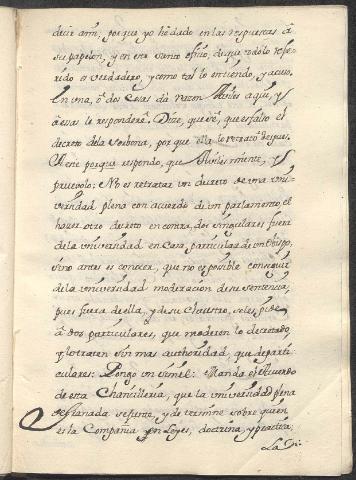 decir aqui, porque yo hé dado en las respuestas â
su papelon, y en este santo oficio, de que todo lo refe-
rido es verdadero, y como tal lo entiendo, y acuso,
En una, ô dos cosas dá razon Aviles aqui, y
â essas le responderê. Dize, que sè, que es falso el
decreto de la Sorbona, porque ella lo retractò despues.
A este porque respondo, que Aviles miente, y
pruevolo: No es retratar un decreto de una uni-
versidad plena con acuerdo de un parlamento, el
hacer otro decreto en contra, dos singulares fuera
de la universidad en casa particular de un Obispo,
sino antes es conocer, que no es posible conseguir
de la universidad moderacion de su sentencia,
pues fuera de ella, y de su claustro, se les pide
â dos particulares, que moderen lo decretado,
y lo traten sin mas authoridad, que de parti-
culares: Pongo un simil: Manda el Acuerdo
de esta Chancilleria, que la universidad plena
de Granada se junte, y determine sobre quien
es la Compañia en Leyes, doctrina, y practica;
La Vni-